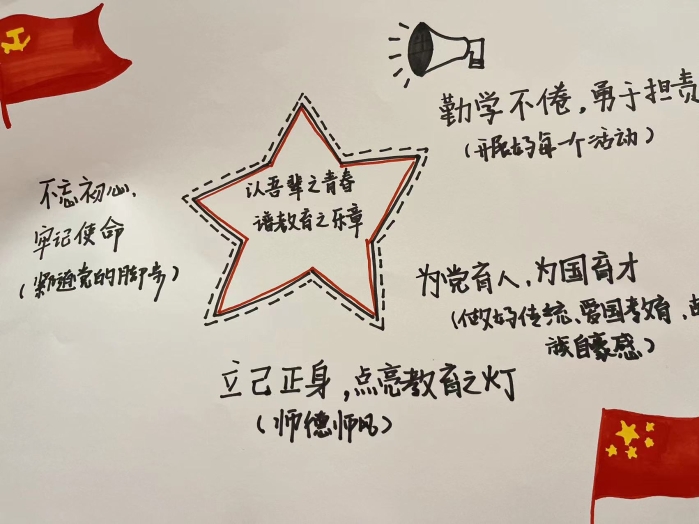 勤学不倦,勇于担责
(开展好每一个活动)
认吾辈之青春
谱教育之乐章
不忘初心、
牢记使命
(紧跟党的脚步)
为党育人,为国育才
(做好传统、爱国教育,
族自豪感)
立己正身,点亮教育之灯
(师德师风)